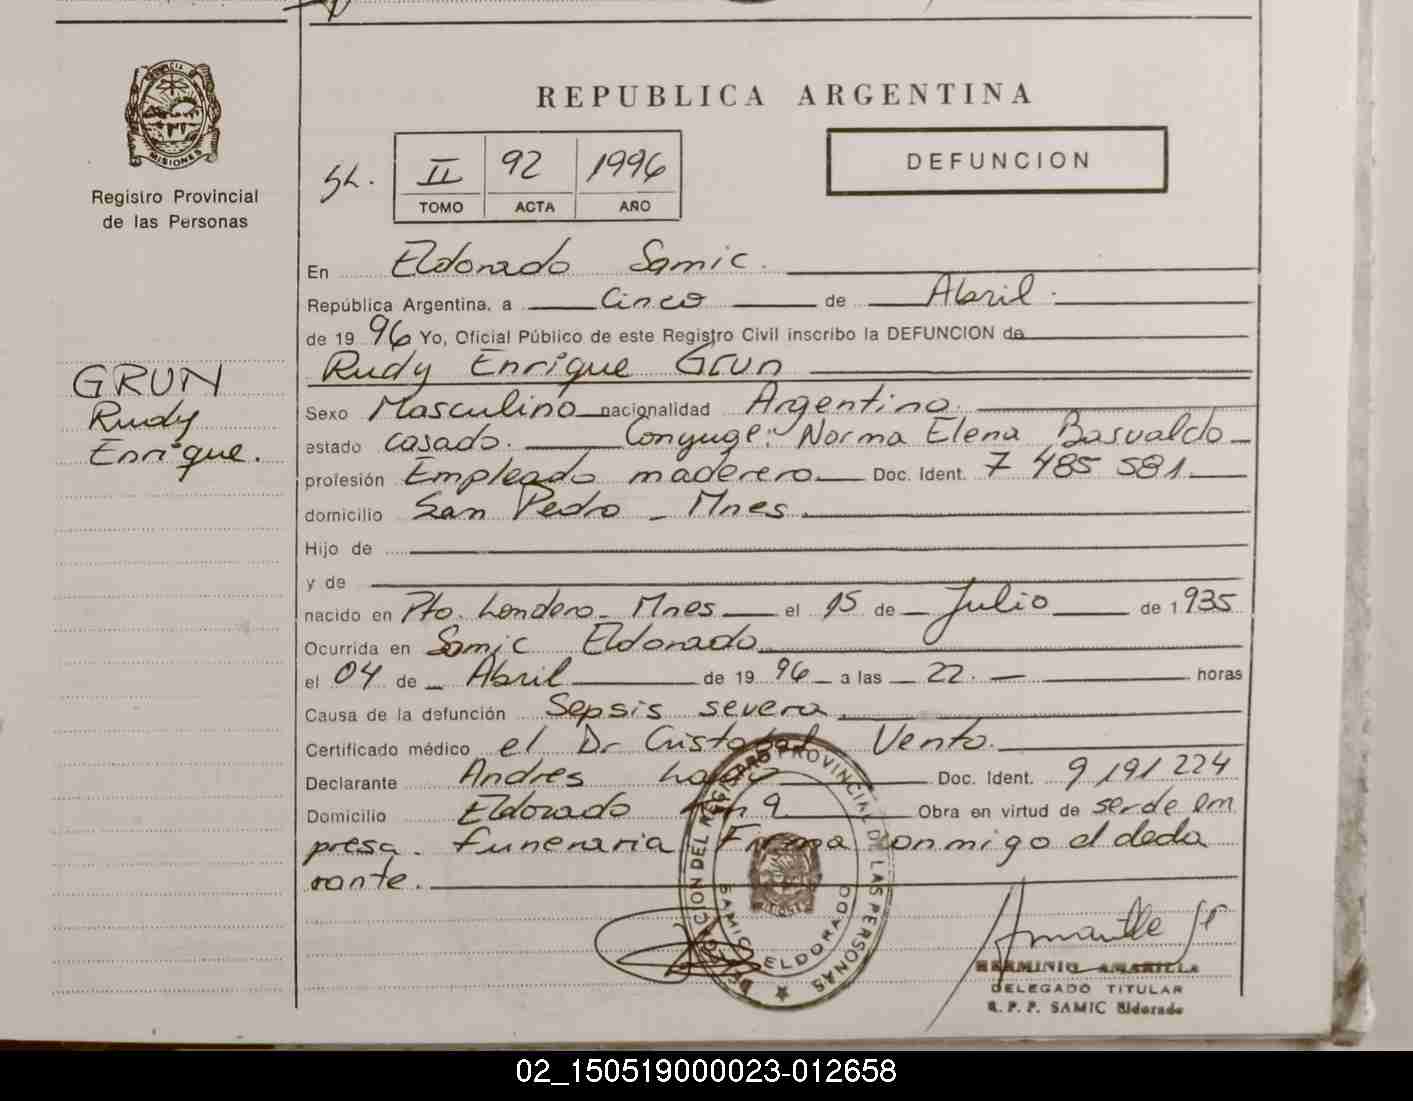 REPUBLICA ARGENTINA
MISIONES
Registro Provincial
de las Personas
II 92 1996
TOMO ACTA AÑO
DEFUNCION
En Eldorado Samic.
República Argentina, a Cinco de Abril.
de 19 96 Yo, Oficial Público de este Registro Civil inscribo la DEFUNCION de
Rudy Enrique Grun
GRUN
Rudy
Enrique.
Sexo Masculino nacionalidad Argentina.
estado casado. Conyuge: Norma Elena Basualdo
profesión Empleado maderero Doc. Ident. 7 485 581
domicilio San Pedro - Mnes.
Hijo de
y de
nacido en Pto. Londero - Mnes el 15 de Julio de 1 935
Ocurrida en Samic Eldorado
el 04 de Abril de 19 96 a las 22. horas
Causa de la defunción Sepsis severa
Certificado médico el Dr Cristobal Vento.
Declarante Andres Doc. Ident. 9 191 224
Domicilio Eldorado Km 9 Obra en virtud de ser de em
presa. funeraria Firma conmigo el decla
rante.
DELEGACION DEL REGISTRO PROVINCIAL DE LAS PERSONAS
SAMIC ELDORADO
HERMINIO AMARILLA
DELEGADO TITULAR
R.P.P. SAMIC Eldorado
02_150519000023-012658